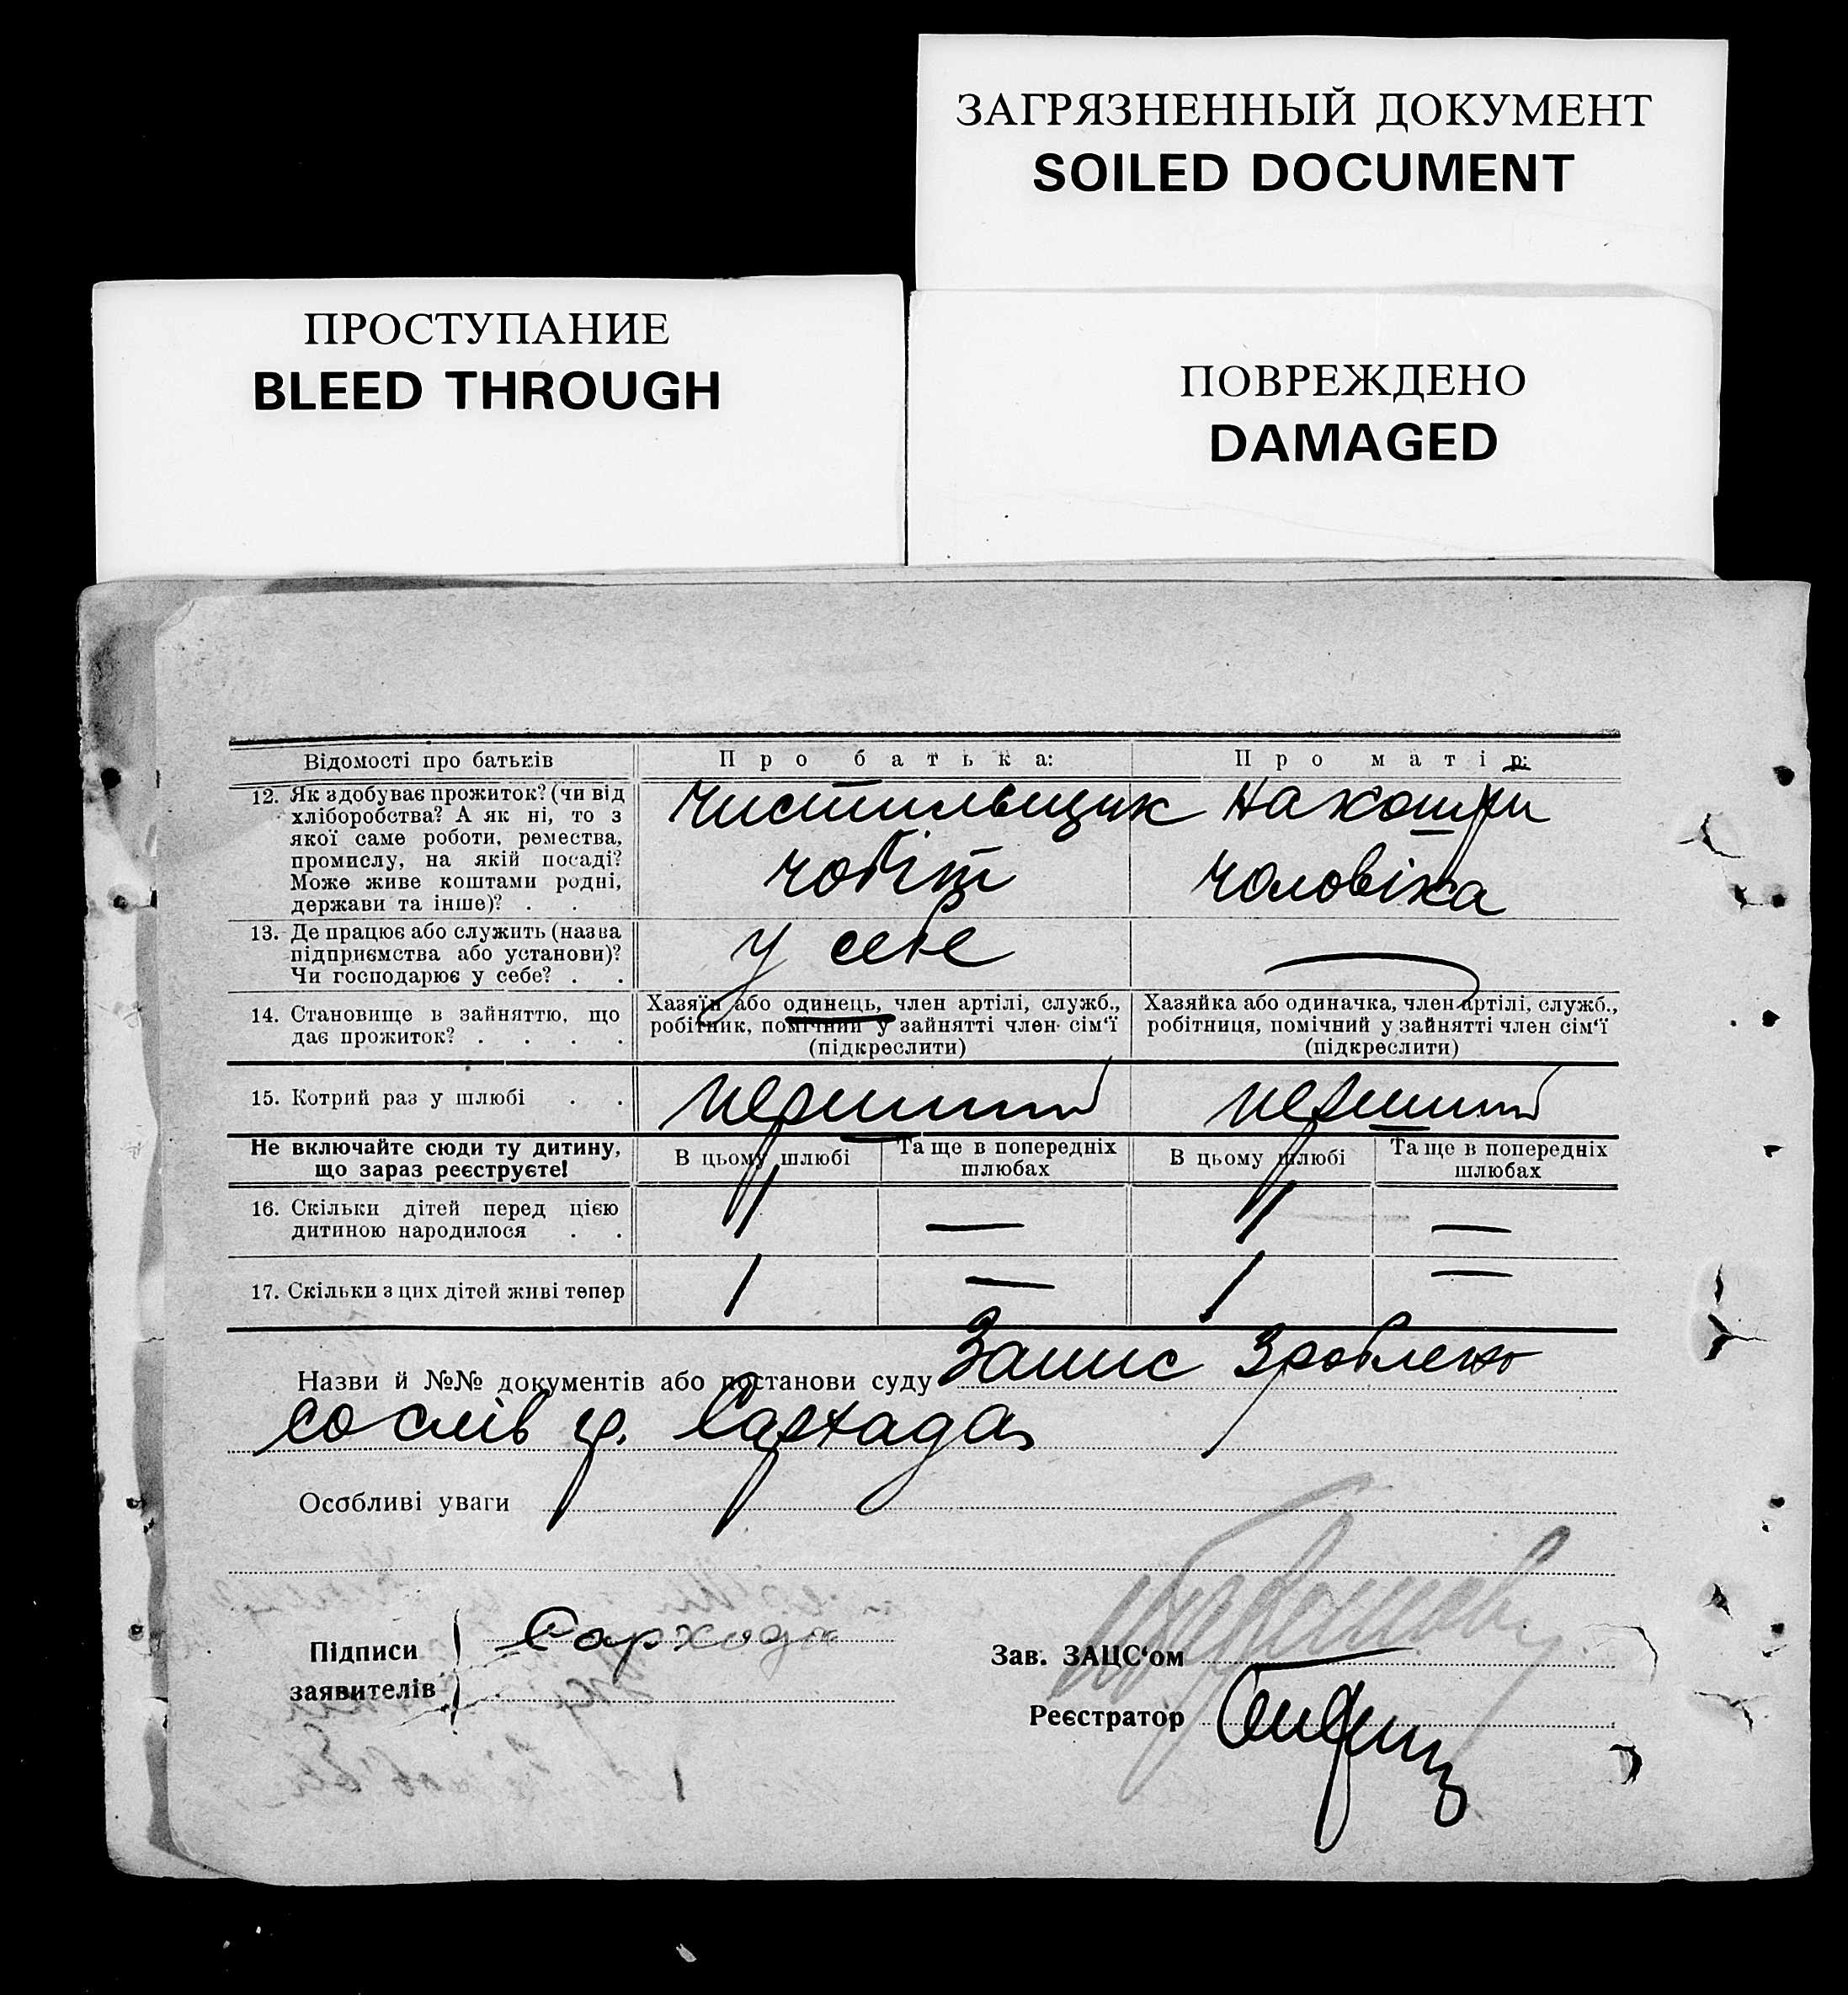 ЗАГРЯЗНЕННЫЙ ДОКУМЕНТ
SOILED DOCUMENT
ПРОСТУПАНИЕ
BLEED THROUGH
ПОВРЕЖДЕНО
DAMAGED
Відомості про батьків
Про батька:
Про матір:
12. Як здобуває прожиток? (чи від
хліборобства? А як ні, то з
якої саме роботи, ремества,
промислу, на якій посаді?
Може живе коштами родні,
держави та інше)? . .
чистильщик
чобіт
на кошти
чоловіка
13. Де працює або служить (назва
підприємства або установи)?
Чи господарює у себе? . .
у себе
—
14. Становище в зайняттю, що
дає прожиток? . . . .
Хазяїн або одинець, член артілі, служб.,
робітник, помічний у зайнятті член сім'ї
(підкреслити)
Хазяйка або одиначка, член артілі, служб.,
робітниця, помічний у зайнятті член сім'ї
(підкреслити)
15. Котрий раз у шлюбі . .
перший
перший
Не включайте сюди ту дитину,
що зараз реєструєте!
В цьому шлюбі
Та ще в попередніх
шлюбах
В цьому шлюбі
Та ще в попередніх
шлюбах
16. Скільки дітей перед цією
дитиною народилося . .
1 — 1 —
17. Скільки з цих дітей живі тепер
1 — 1 —
Назви й №№ документів або постанови суду Запис зроблено
со слів гр.
Особливі уваги
Підписи
заявителів
Сархода
Зав. ЗАЦС'ом
Реєстратор